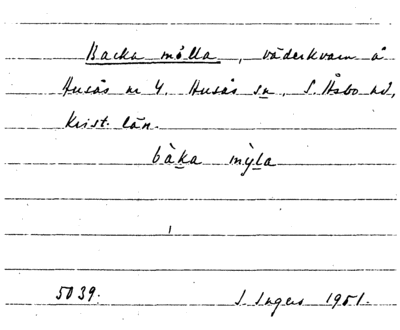 Backa mölla, väderkvarn å
Husås nr 4. Husås sn, S. Åsbo hd,
Krist. län.
bàka mỳla
5039. I. Ingers 1951.